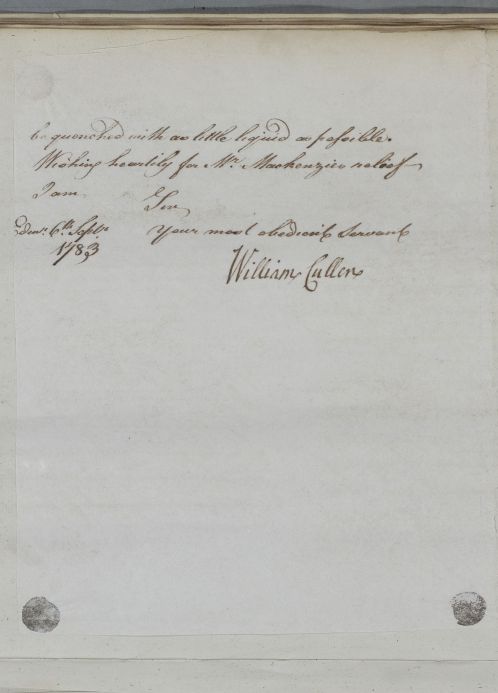 be quenched with as little liquid as possible.
Wishing heartily for Mr. Mackenzies relief
I am
Sir
Edinr. 6th. Septr. your most obedient servant
1783
William Cullen